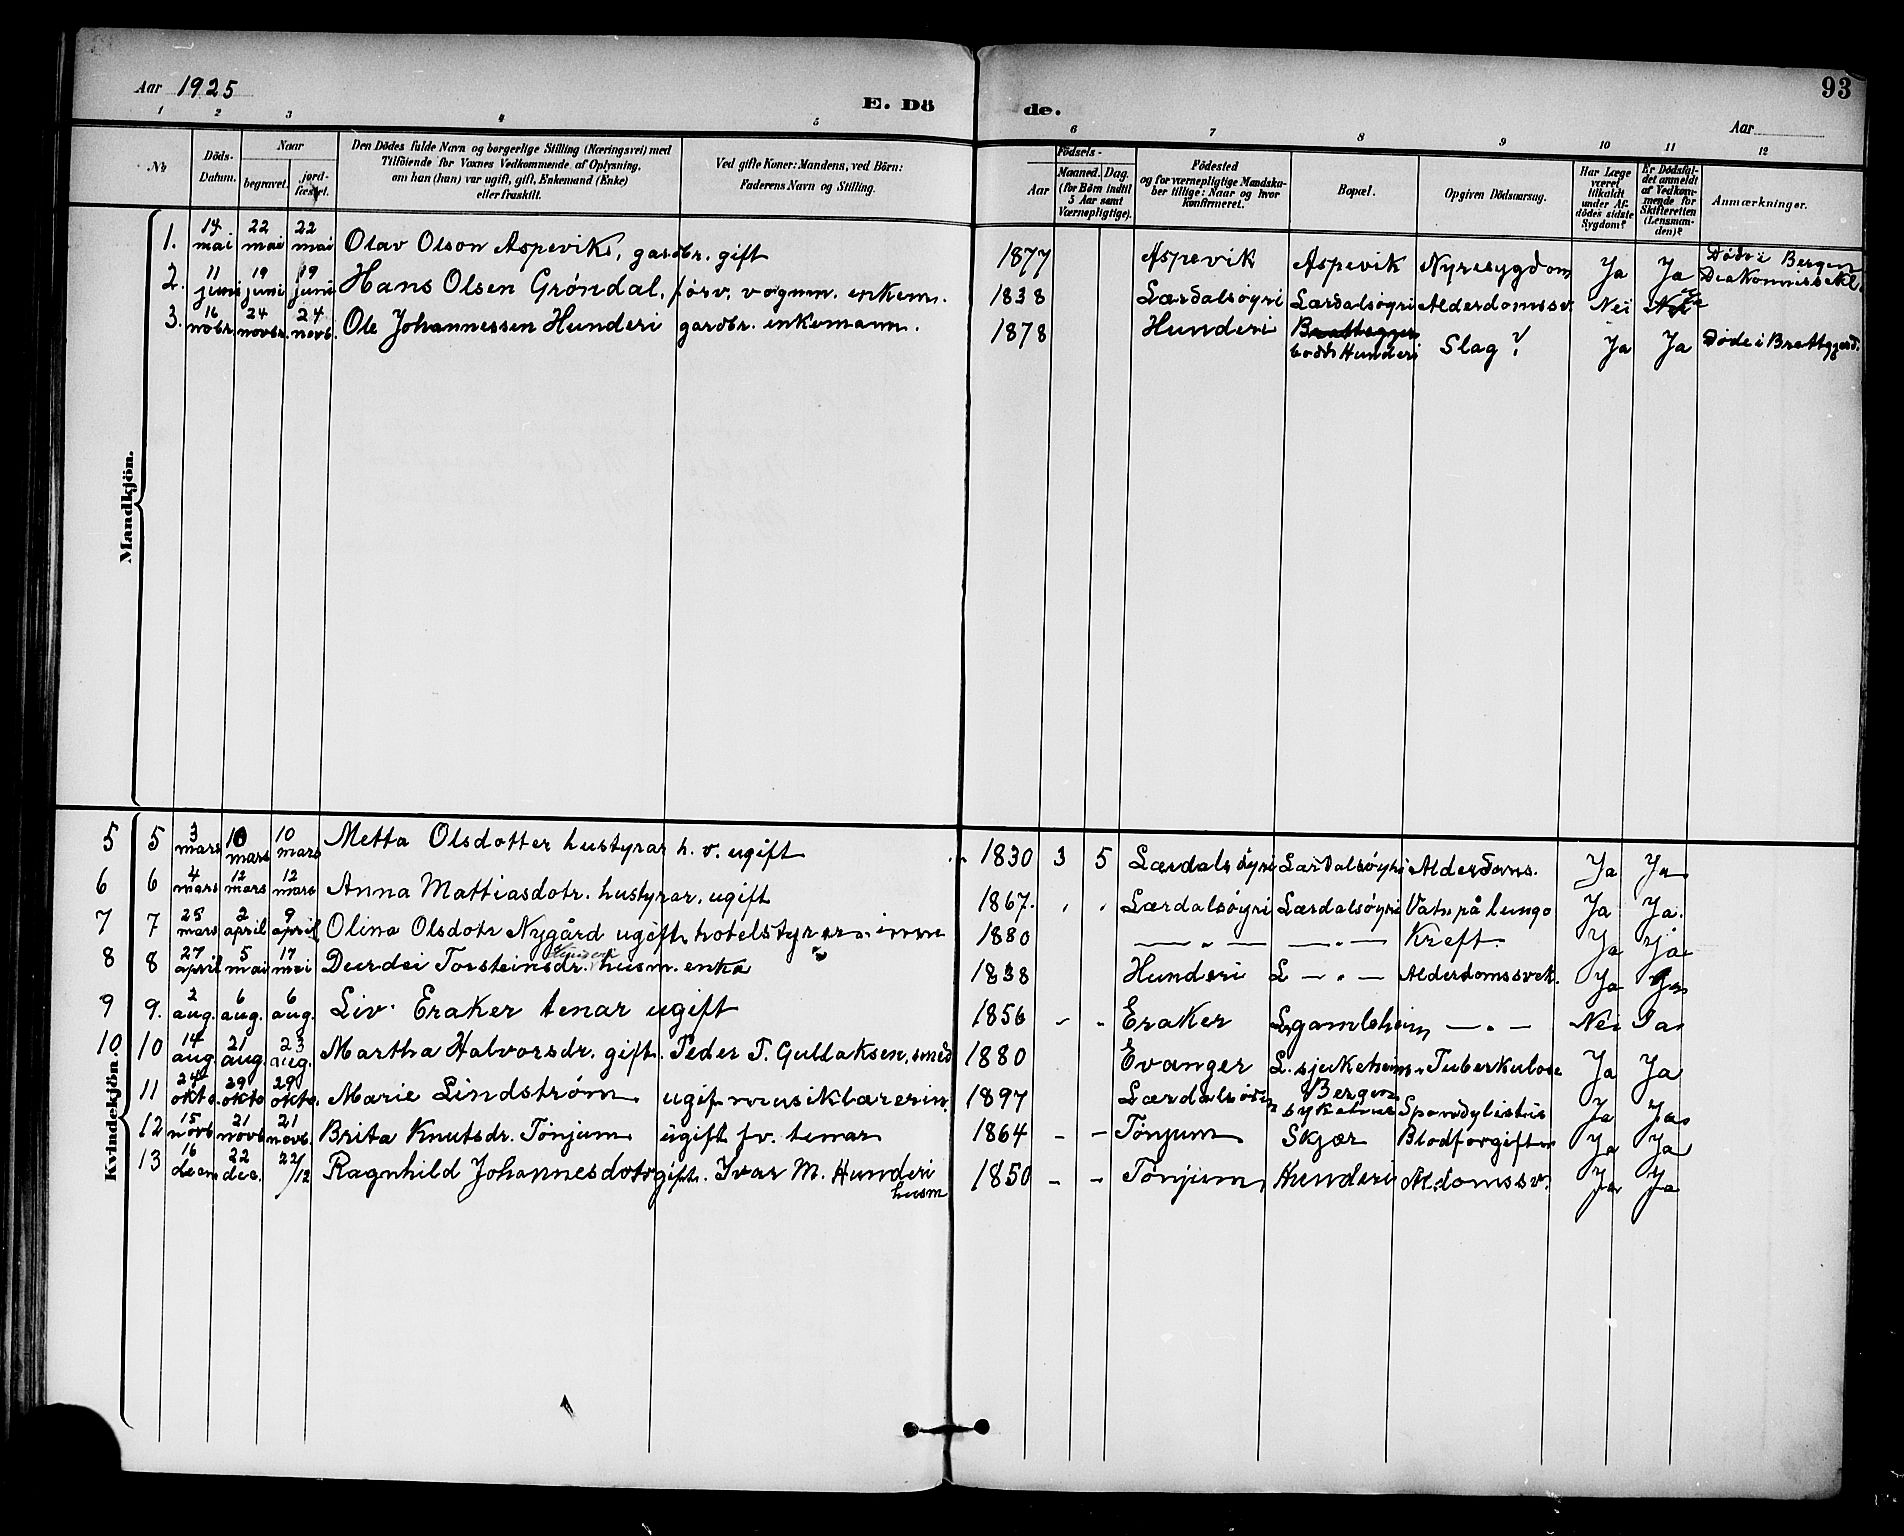 Aar 1925
E. Dö de.
93
Aar
1 2 3 4 5 6 7 8 9 10 11 12
No
Döds-Datum.
Naar
begravet.
jord-fæstet.
Den Dödes fulde Navn og borgerlige Stilling (Næringsvei) med Tilföiende for Voxnes Vedkommende af Oplysning, om han (hun) var ugift, gift, Enkemand (Enke) eller fraskilt.
Ved gifte Koner: Mandens, ved Börn: Faderens Navn og Stilling.
Födsels-
Aar
Maaned. Dag.
(for Börn indtil 5 Aar samt Værnepligtige).
Födested og for værnepligtige Mandskaber tillige: Naar og hvor konfirmeret.
Bopæl.
Opgiven Dödsaarsag.
Har Læge været tilkaldt under Afdödes sidste Sygdom?
Er Dödsfaldet anmeldt af Vedkommende for Skifteretten (Lensmanden)?
Anmærkninger.
Mandkjön.
1. 14 mai 22 mai 22 mai Olav Olson Aspevik, gardbr. gift 1877 Aspevik Aspevik Nyresygdom Ja Ja Døde i Bergen
2. 11 juni 19 juni 19 juni Hans Olsen Grøndal, forv. vognm. enkem. 1838 Lærdalsøyri Lærdalsøyri Alderdomssv. Nei
3. 16 nobr. 24 novbr. 24 novb. Ole Johannessen Hunderi gardbr. enkemann. 1878 Hunderi Hunderi Slag? Ja Ja Døde i Brattegjerd.
Kvindekjön.
5 5 3 mars 10 mars 10 mars Metta Olsdotter hustyrar h. v. ugift 1830 3 5 Lærdalsøyri Lærdalsøyri Alderdoms. Ja Ja
6 6 4 mars 12 mars 12 mars Anna Mattiasdotr. hustyrar, ugift 1867. Lærdalsøyri Lærdalsøyri Vatn på lungo Ja Ja.
7 7 25 mars 2 april 9 april Olina Olsdotr Nygård ugift hotelstyrer 1880 — " — — " — Kreft Ja Ja
8 8 27 april 5 mai 17 mai Torsteinsdr. husm. enka 1838 Hunderi L — " — Alderdomssvek. Ja Ja
9 9. 2 aug. 6 aug. 6 aug. Liv Eraker tenar ugift 1856 - - Eraker L gamleheim — " — Nei Ja
10 10 14 aug 21 aug. 23 aug. Martha Halvorsdr. gift. Peder T. Gullaksen, smed 1880 Evanger L. sjukeheim Tuberkulose Ja Ja
11 24 okto. 29 okto 29 okto. Marie Lindstrøm ugift musiklærerin. 1897 Lærdalsören Bergen sykehus Spondylistis Ja Ja
12 15 novb. 21 novb 21 novb. Brita Knutsdr. Tönjum ugift fv. tenar 1864 - - Tönjum Skjær Blodforgiftn Ja Ja
13 16 decm 22 dec. 22/12 Ragnhild Johannesdotr gift. Ivar M. Hunderi husm 1850 - - Tönjum Hunderi Ald​omssv. Ja Ja